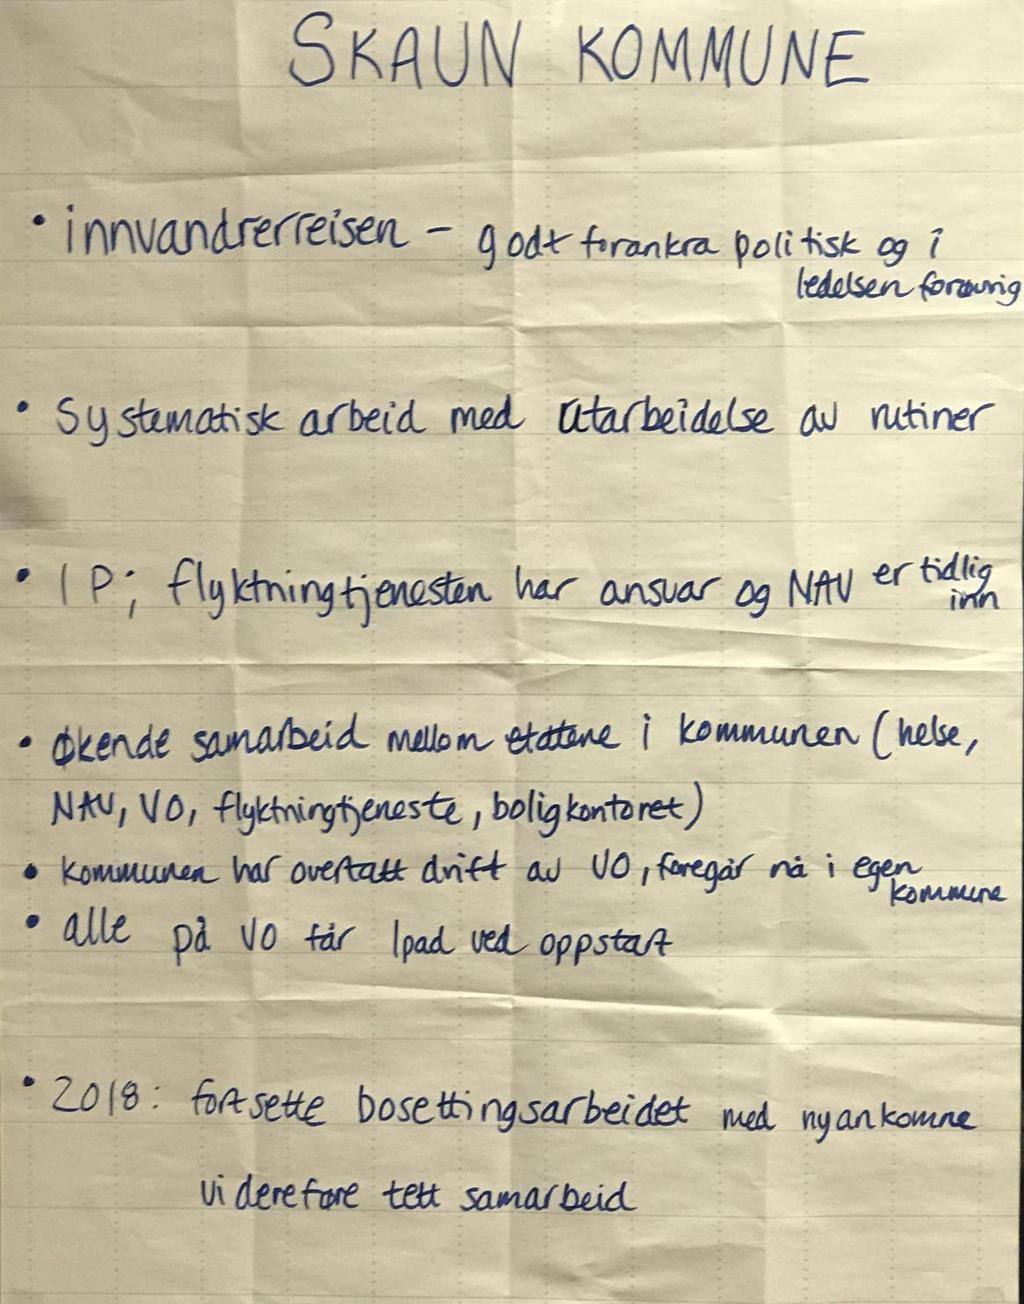 SKAUN KOMMUNE
• innvandrerreisen – godt forankra politisk og i
ledelsen forøvrig
• Systematisk arbeid med utarbeidelse av rutiner
• IP; flyktningtjenesten har ansvar og NAV er tidlig
inn
• Økende samarbeid mellom etatene i kommunen (helse,
NAV, VO, flyktningtjeneste, boligkontoret)
• kommunen har overtatt drift av VO, foregår nå i egen
kommune
• alle på VO får Ipad ved oppstart
• 2018: fortsette bosettingsarbeidet med nyankomne
videreføre tett samarbeid